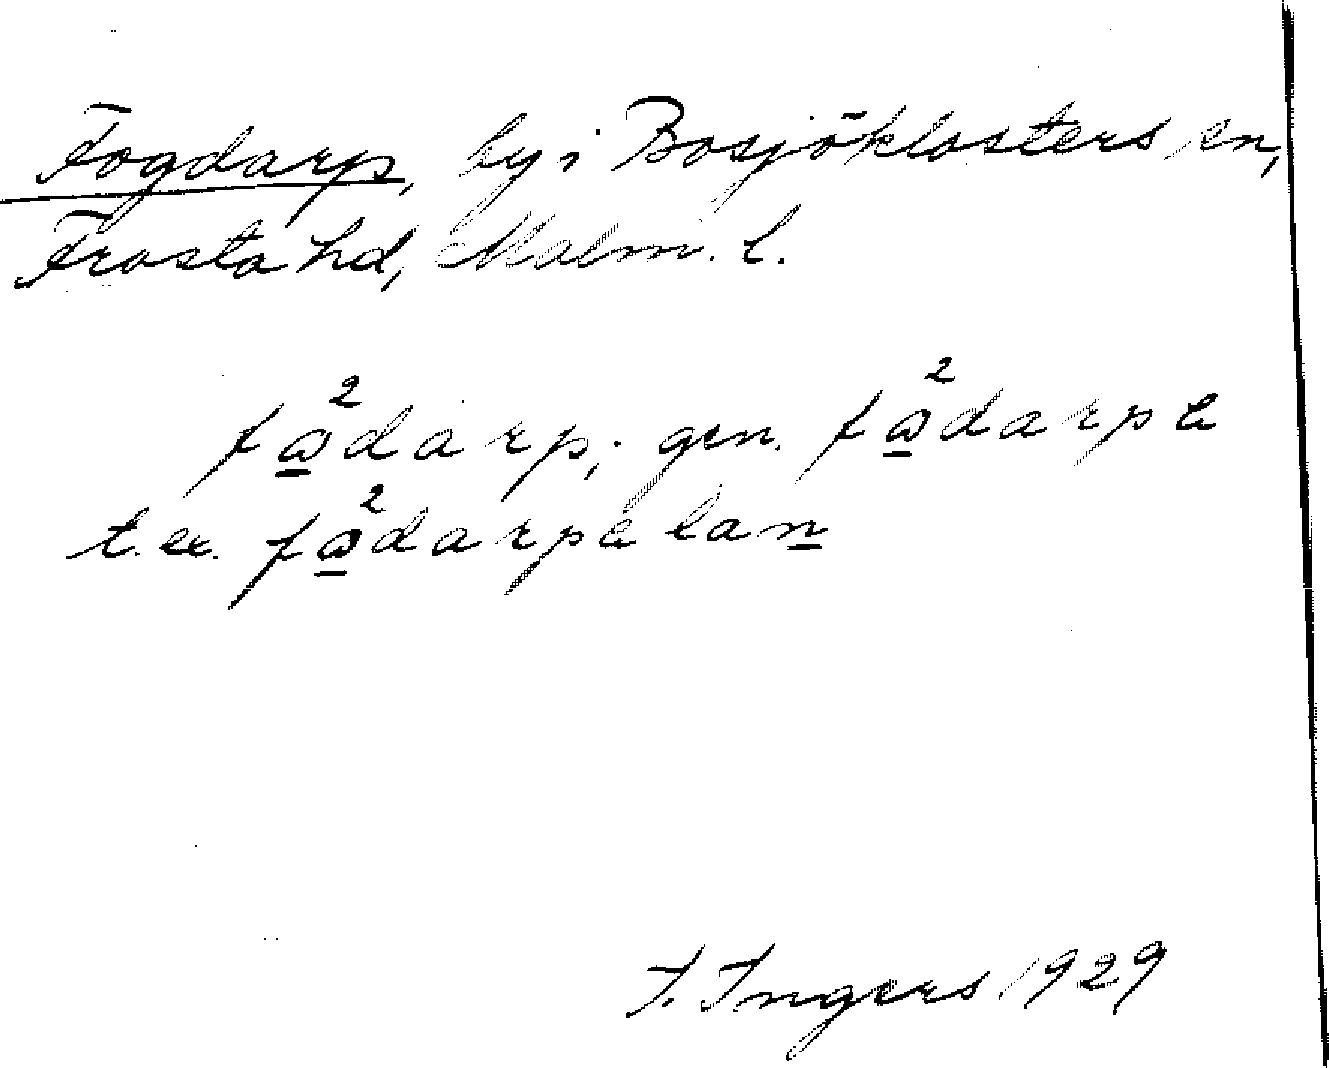 Fogdarp, by i Bosjöklosters sn,
Frosta hd, Malm. l.
fa²darp; gen. fa²darpa
t. ex. fa²darpa lan
I. Ingers 1929